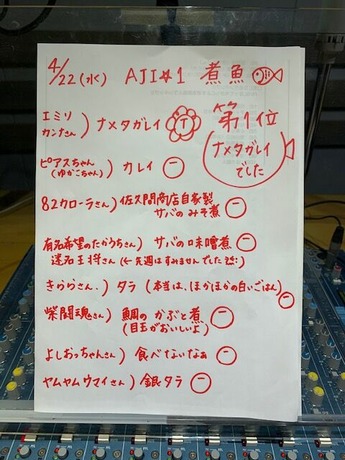 4/22(水) AJI#1 煮魚
エミリカンナさん) ナメタガレイ T 第1位
ナメタガレイでした
ピアスちゃん(ゆかこちゃん)) カレイ 一
82カローラさん) 佐久間商店自家製
サバのみそ煮 一
有名希望のたかうちさん) サバの味噌煮 一
達石王将さん (←先週はすみませんでした
きららさん) タラ (本当は、ほかほかの白いごはん) 一
柴闘魂さん) 鯛のかぶと煮 一
(目玉がおいしいよ)
よしおっちゃんさん) 食べてないなぁ 一
ヤムヤムウマイさん) 銀タラ 一